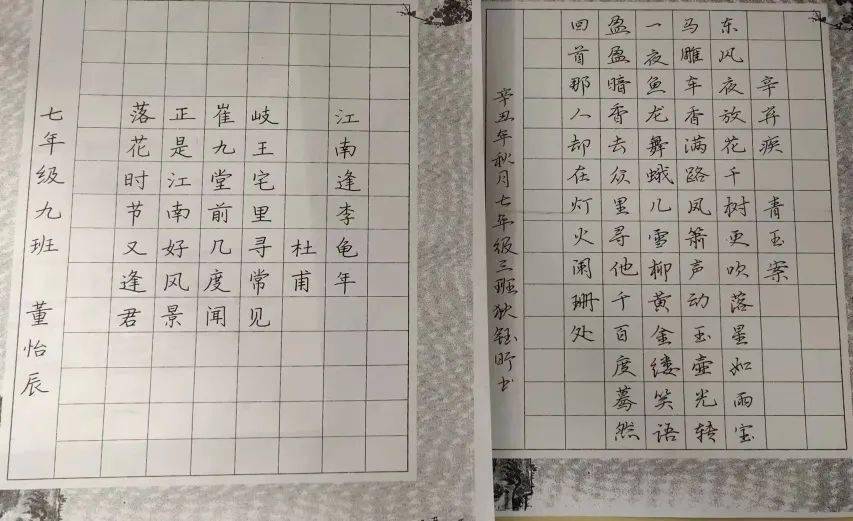 江南逢李龟年
杜甫
岐王宅里寻常见
崔九堂前几度闻
正是江南好风景
落花时节又逢君
七年级九班 董怡辰
辛弃疾 青玉案
东风夜放花千树更吹落星如雨宝
马雕车香满路凤箫声动玉壶光转
一夜鱼龙舞蛾儿雪柳黄金缕笑语
盈盈暗香去众里寻他千百度蓦然
回首那人却在灯火阑珊处
辛丑年秋月七年级三班狄钰书